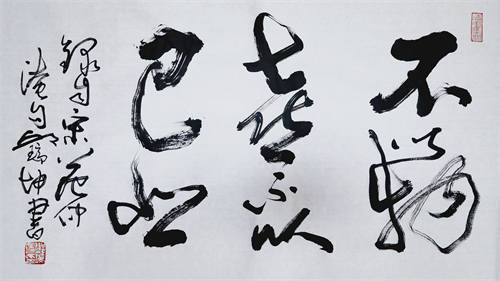 不以物
喜不以
己悲
錄自宋范仲
淹句瑞坤書